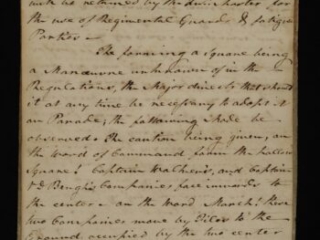 will be returned by the Quarter Master for
the use of Regimental Guards & fatigue
Parties —
The forming a Square being
a Manœuvre unknown of in the
Regulations, the Major directs that should
it at any time be necessary to adopt it
on Parade, the following Mode be
observed. The caution being given, on
the Word of Command form the hollow
Square! Captain and Captain
Companies face inwards to
the center — on the Word March! these
two Companies move by Files to the
Ground occupied by the two center